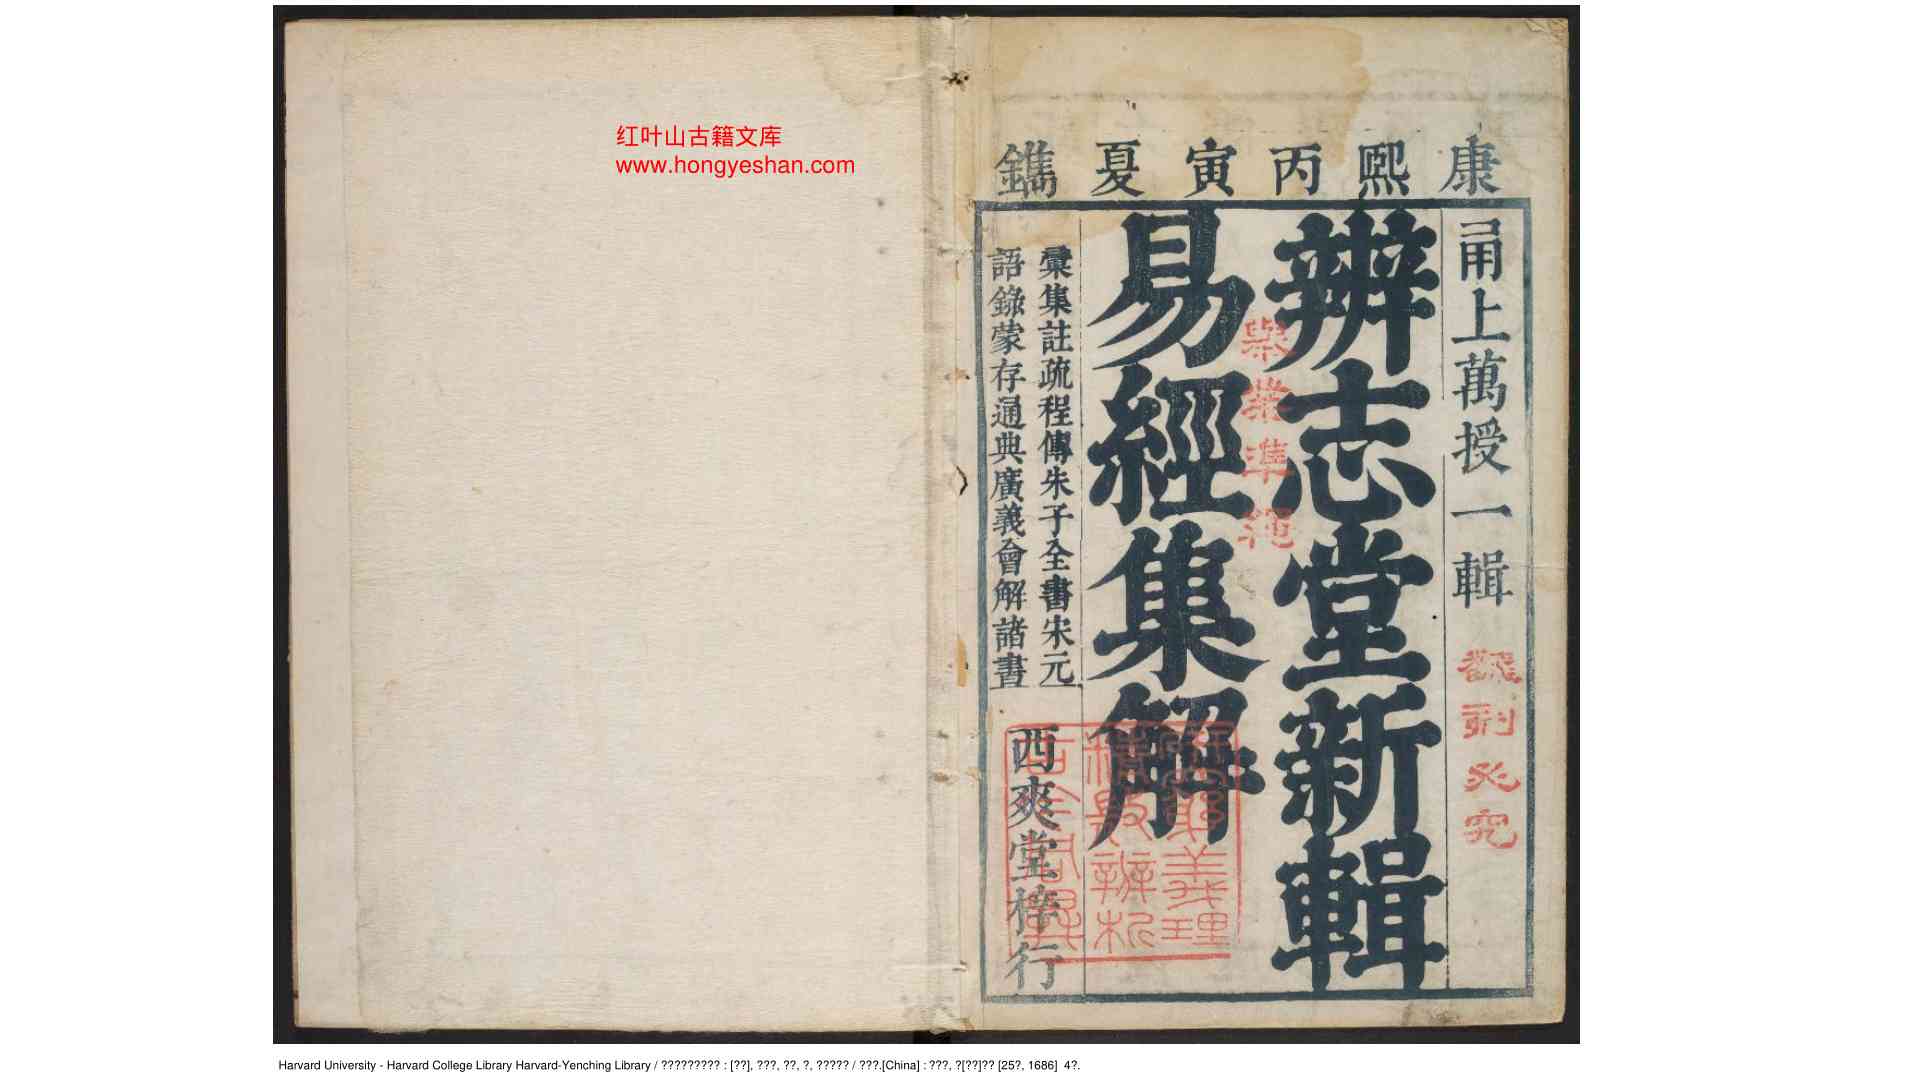 红叶山古籍文库
www.hongyeshan.com
康熙丙寅夏鐫
甬上萬授一輯
翻刻必究
辨志堂新輯
易經集解
舉業準繩
彙集註疏程傳朱子全書宋元
語錄蒙存通典廣義會解諸書
西爽堂梓行
義理
辨析
Harvard University - Harvard College Library Harvard-Yenching Library / ????????? : [??], ???, ??, ?, ????? / ???.[China] : ???, ?[??]?? [25?, 1686] 4?.